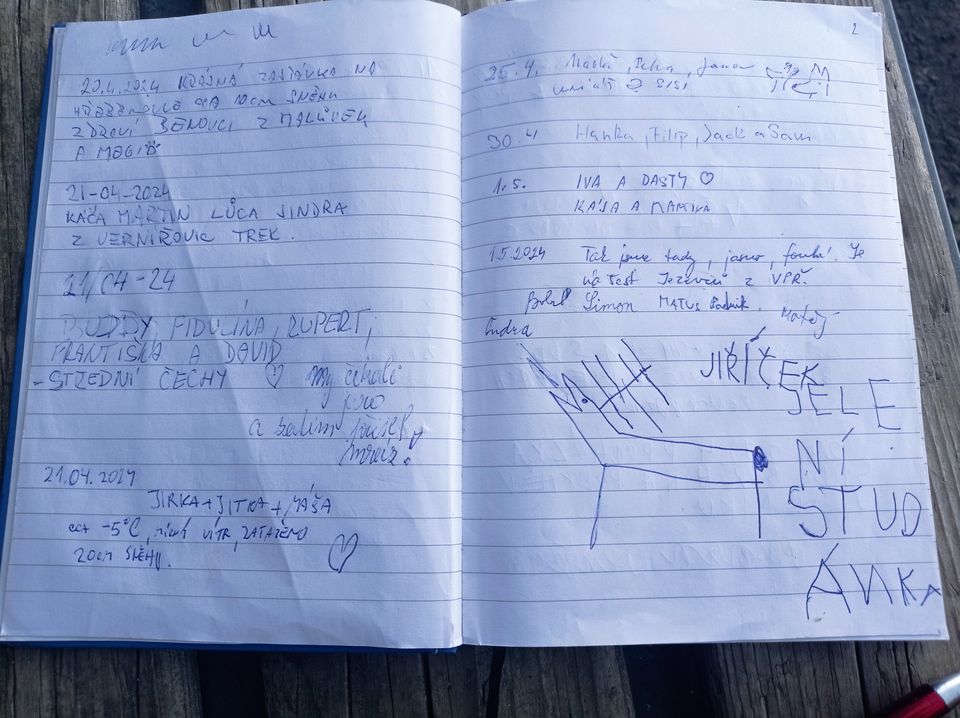 20.4.2024 KRÁSNÁ ZASTÁVKA NA
CCA 10CM SNĚHU
ZDRAVÍ BENOUCI Z
A MEGI
21-04-2024
KÁČA MARTIN LŮCA JINDRA
Z VERNÍŘOVIC TREK.
21/04-24
BUDDY, FIDULÍNA, RUPERT,
FRANTIŠKA A DAVID
-STŘEDNÍ ČECHY ♡ my čekali
jaro
a zatím přišel
mráz!
21.04.2024
JIRKA+JITKA+MÁŠA
cca -5°C, mírný VÍTR, ZATAŽENO
20cm SNĚHU.
2
25.4. Petra, Jana
SISI
30.4 Hanka, Filip, Jack a Sam
1.5. IVA A DASTY ♡
KÁJA A MAMINA
1.5.2024 Tak jsme tady, jasno, fouká. Je
nás šest Jezevců z VPŘ.
Šimon MATUŠ
Matěj
Ondra
JIŘÍČEK
JELE
NÍ
STUD
ÁNKA